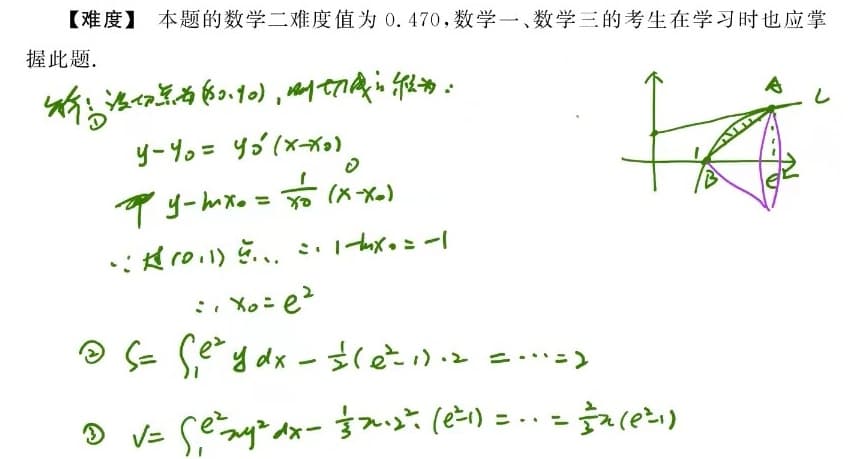 【难度】 本题的数学二难度值为 0.470,数学一、数学三的考生在学习时也应掌
握此题.
解:①设切点为(x0,y0),则切线方程为:
y-y0=y0'(x-x0)
即 y-lnx0=1/x0 (x-x0)
∵过(0,1)点... ∴1-lnx0=-1
∴x0=e²
② S=∫₁^e² y dx - 1/2(e²-1)·2 =···=2
③ V=∫₁^e² πy² dx - 1/3 π·2²·(e²-1) =··= 2/3 π(e²-1)
A
L
1
B
e²